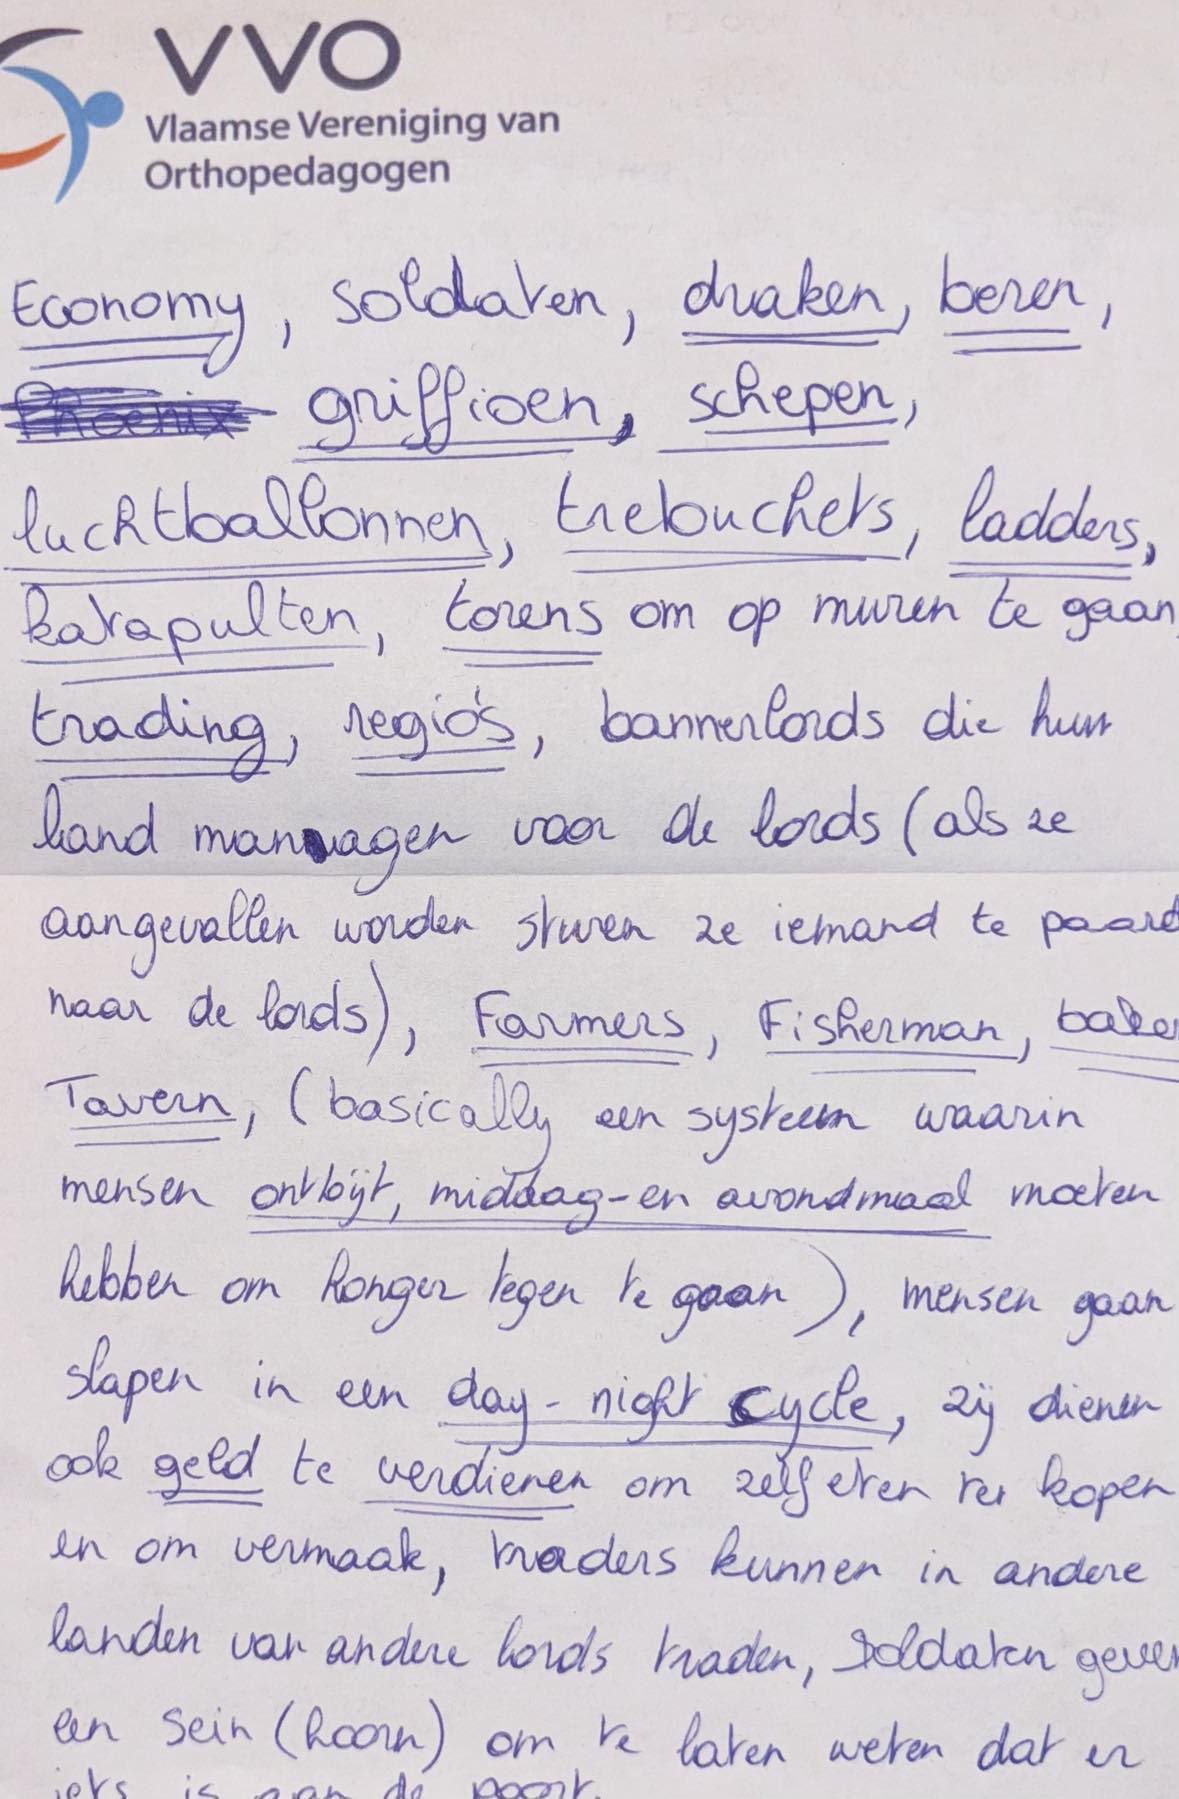 VVO
Vlaamse Vereniging van
Orthopedagogen
Economy, soldaten, draken, beren,
Phoenix griffioen, schepen,
luchtballonnen, trebuchets, ladders,
katapulten, torens om op muren te gaan
trading, regio's, bannerlords die hun
land managen voor de lords (als ze
aangevallen worden sturen ze iemand te paard
naar de lords), Farmers, Fisherman, baker
Tavern, (basically een systeem waarin
mensen ontbijt, middag-en avondmaal moeten
hebben om honger tegen te gaan), mensen gaan
slapen in een day-night cycle, zij dienen
ook geld te verdienen om zelf eten te kopen
en om vermaak, traders kunnen in andere
landen van andere lords traden, soldaten geven
een sein (hoorn) om te laten weten dat er
iets is aan de poort.